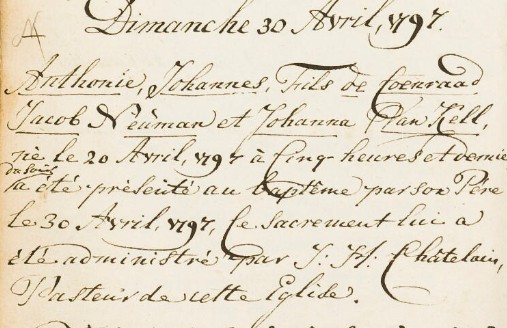 Dimanche 30 Avril, 1797.
Anthonie, Johannes, Fils de Coenraad
Jacob Neüman et Johanna Plan Kell,
né le 20 Avril, 1797 à Cinq heures et demie
du soir
a été présenté au baptême par son Père
le 30 Avril, 1797, Ce sacrement lui a
été administré par J: H: Châtelain,
Pasteur de cette Eglise.